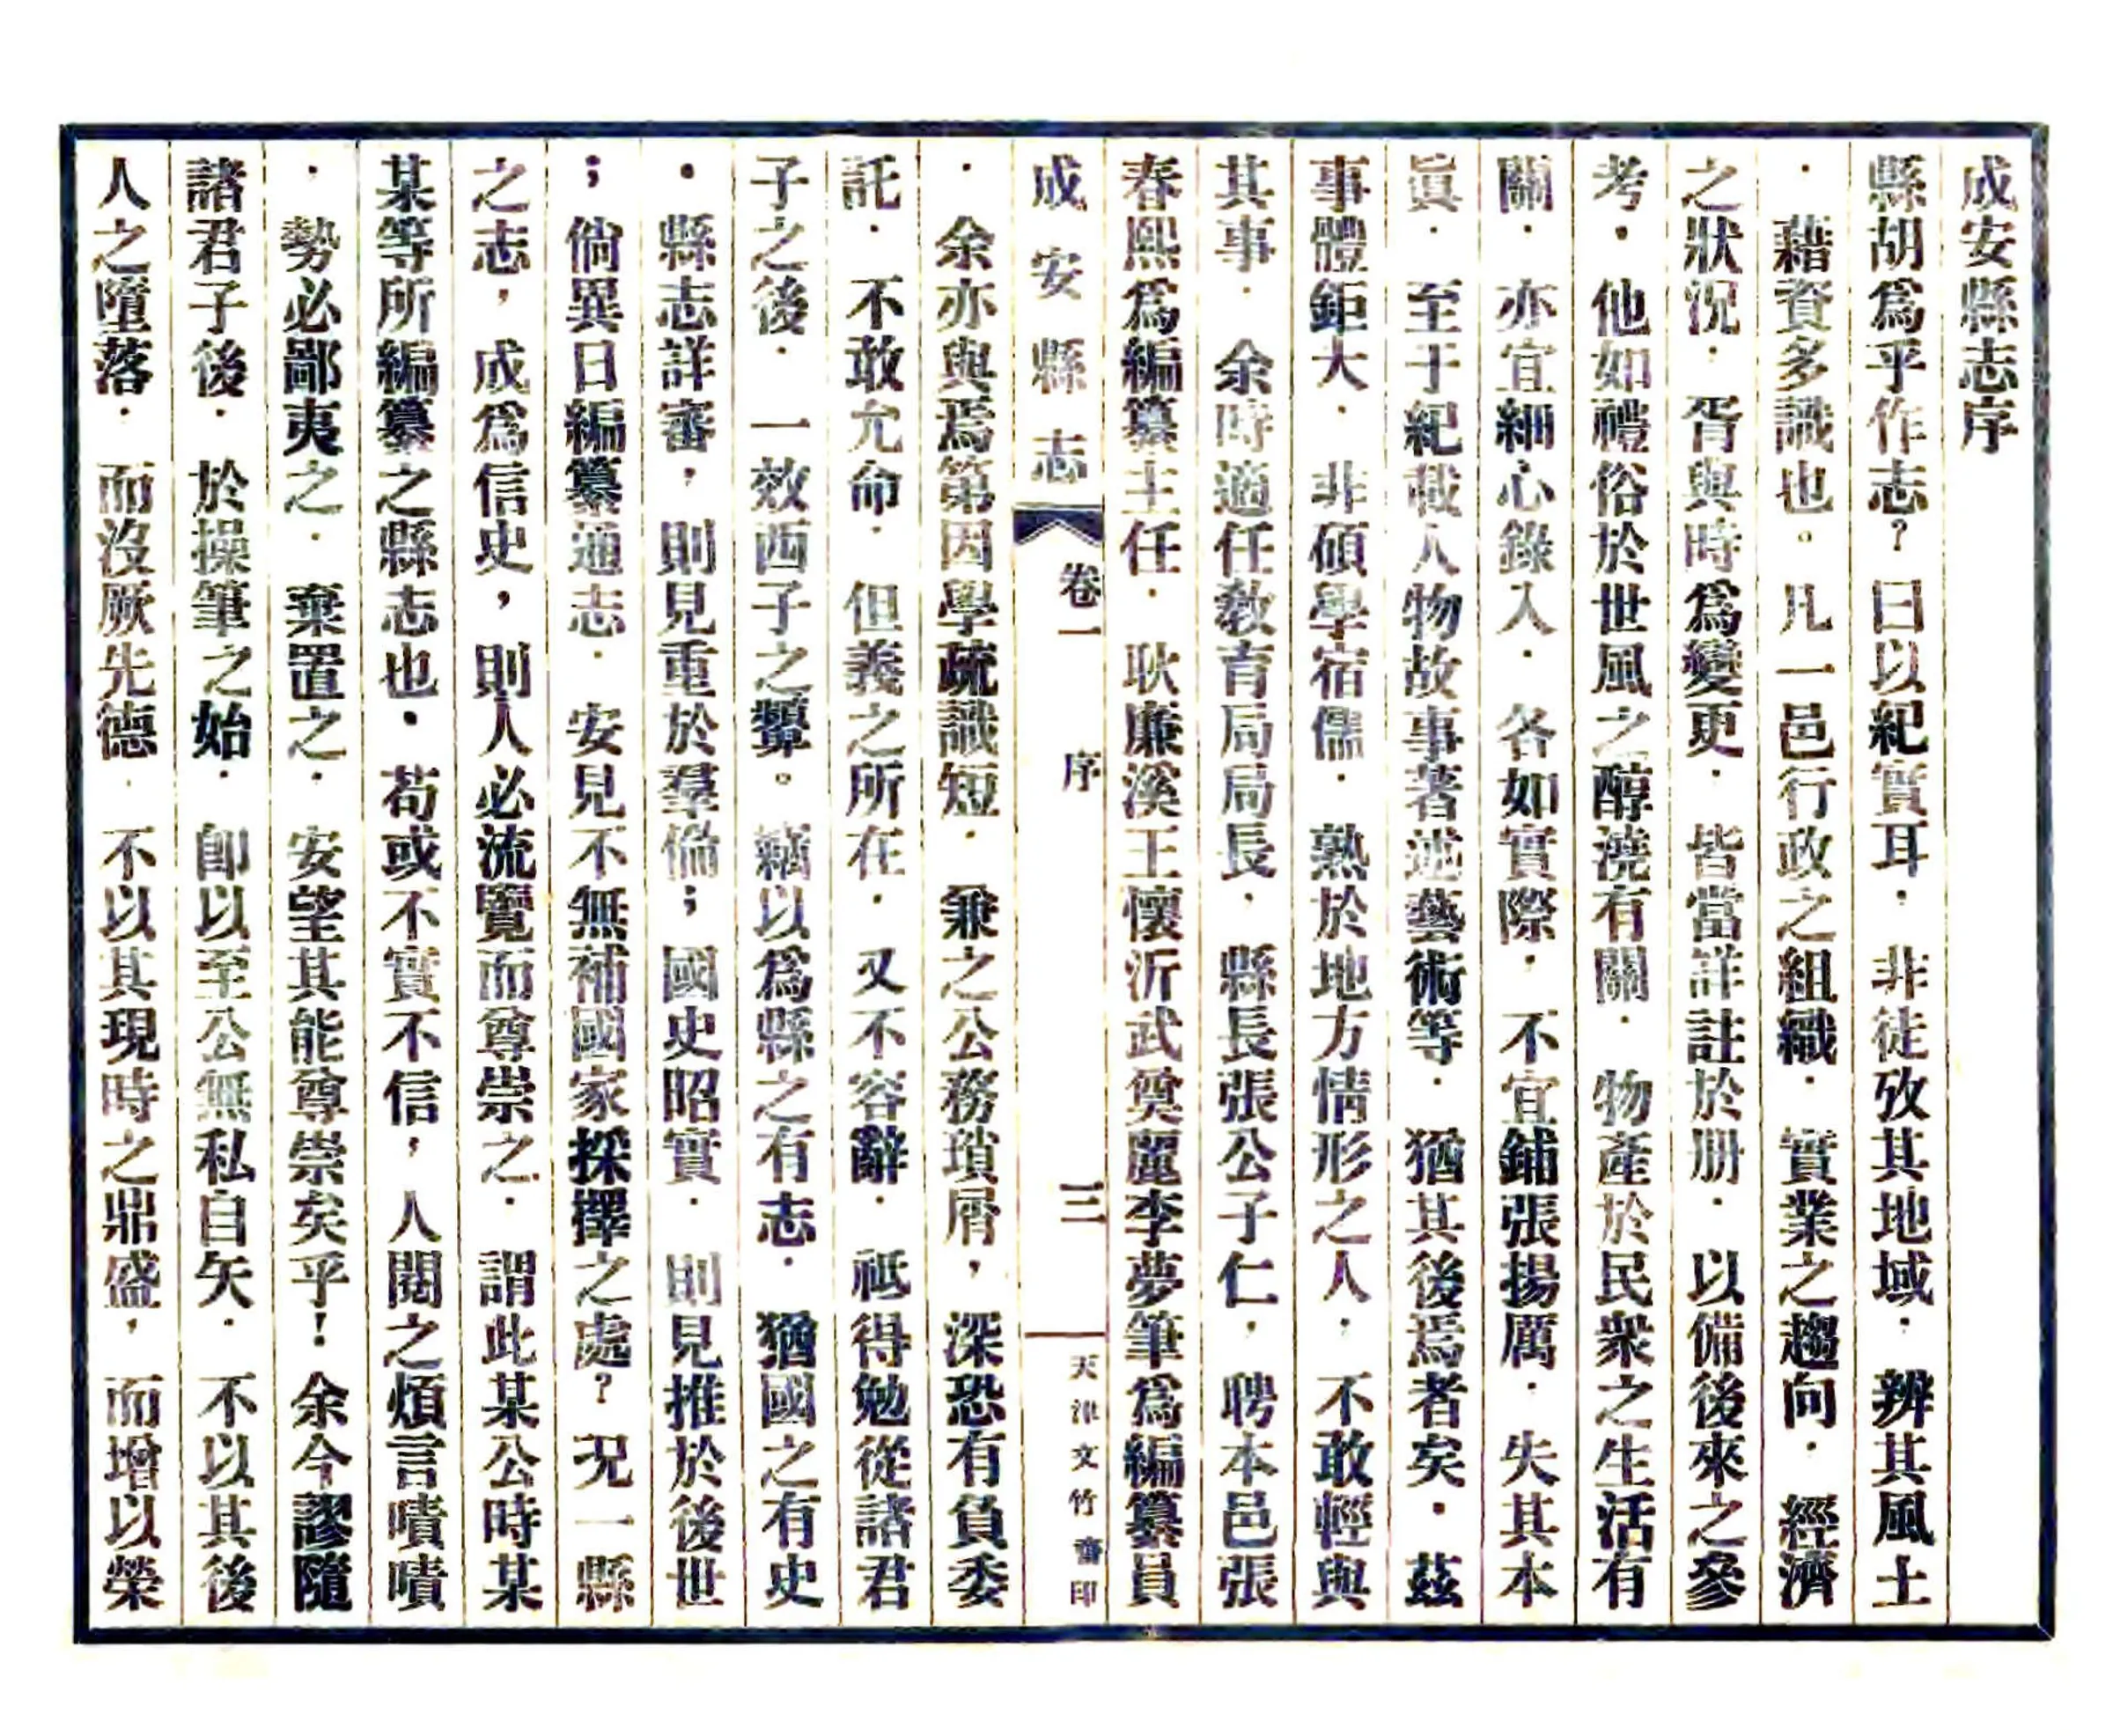 成安縣志序
縣胡爲乎作志？曰以紀實耳．非徒攷其地域．辨其風土
．藉資多識也。凡一邑行政之組織．實業之趨向．經濟
之狀況．胥與時爲變更．皆當詳註於册．以備後來之參
考．他如禮俗於世風之醇澆有關．物產於民衆之生活有
關．亦宜細心錄入．各如實際．不宜鋪張揚厲．失其本
眞．至于紀載人物故事著述藝術等．猶其後焉者矣．茲
事體鉅大．非碩學宿儒．熟於地方情形之人．不敢輕與
其事．余時適任敎育局局長．縣長張公子仁．聘本邑張
春熙爲編纂主任．耿廉溪王懷沂武奠麗李夢筆爲編纂員
成安縣志 卷一 序 三 天津文竹齋印
．余亦與焉第因學疏識短．兼之公務瑣屑，深恐有負委
託．不敢允命．但義之所在．又不容辭．祗得勉從諸君
子之後．一效西子之顰。竊以爲縣之有志．猶國之有史
．縣志詳審，則見重於羣倫；國史昭實．則見推於後世
；倘異日編纂通志．安見不無補國家採擇之處？况一縣
之志，成爲信史，則人必流覽而尊崇之．謂此某公時某
某等所編纂之縣志也．苟或不實不信，人閱之煩言嘖嘖
．勢必鄙夷之．棄置之．安望其能尊崇矣乎！余今謬隨
諸君子後．於操筆之始．卽以至公無私自矢．不以其後
人之墮落．而沒厥先德．不以其現時之鼎盛，而增以榮